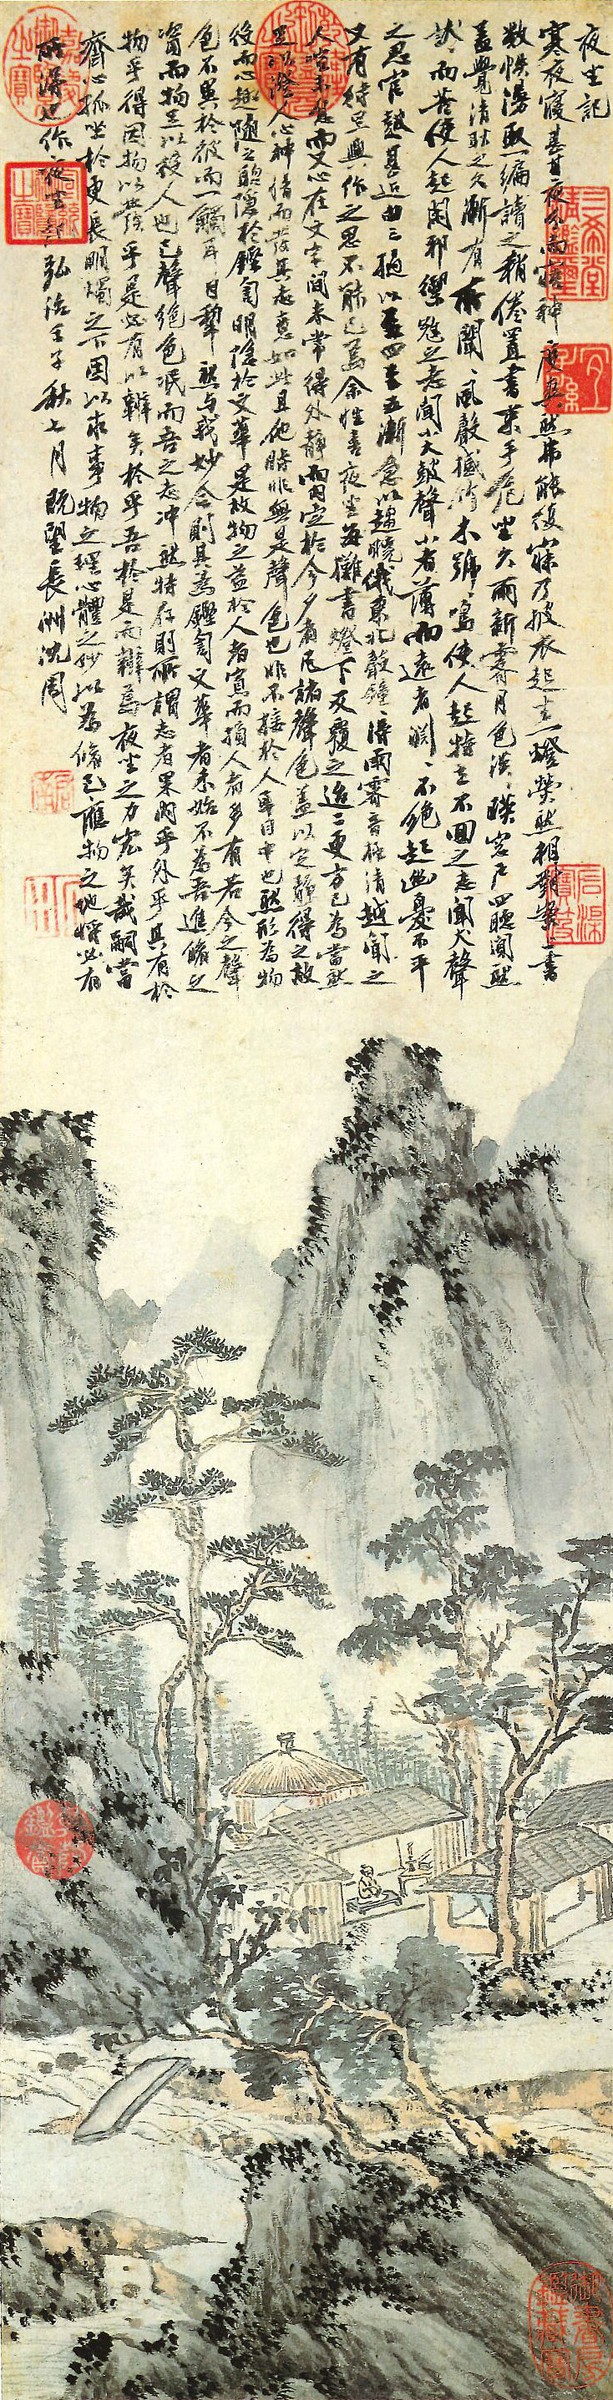 夜坐記
寒夜寢甚甘夜分而寤神度爽然弗能復寐乃披衣起坐一燈熒然相對案上書
數帙漫取一編讀之稍倦置書束手危坐久雨新霽月色淡淡映窗戶四聽闃然
蓋覺清耿之久漸有所聞聞風聲撼竹木號號鳴使人起特立不回之志聞犬聲
狺狺而苦使人起閑邪禦寇之志聞小大鼓聲小者薄而遠者淵淵不絕起幽憂不平
之思官鼓甚近由三撾以至四至五漸急以趨曉俄東北聲鐘鐘得雨霽音極清越聞之
又有待旦興作之思不能已焉余性喜夜坐每攤書燈下反覆之迨二更方已為當然
人喧未息而又心在文字間未常得外靜而內定於今夕者凡諸聲色蓋以定靜得之故
足以澄人心神情而發其志意如此且他時非無是聲色也非不接於人耳目中也然形為物
役而心趣隨之聰隱於鏗訇明隱於文華是故物之益於人者寡而損人者多有若今之聲
色不異於彼而一觸耳目犁然與我妙合則其為鏗訇文華者未始不為吾進修之
資而物足以役人也已聲絕色泯而吾之志沖然特存則所謂志者果內乎外乎其有於
物乎得因物以發乎是必有以辨矣於乎吾於是而辨焉夜坐之力宏矣哉嗣當
齋心孤坐於更長明燭之下因以求事物之理心體之妙以為修己應物之地將必有
所得也作夜坐記弘治壬子秋七月既望長洲沈周
三希堂精鑑璽
宜子孫
嘉慶御覽之寶
乾隆鑑賞
御書房鑑藏寶